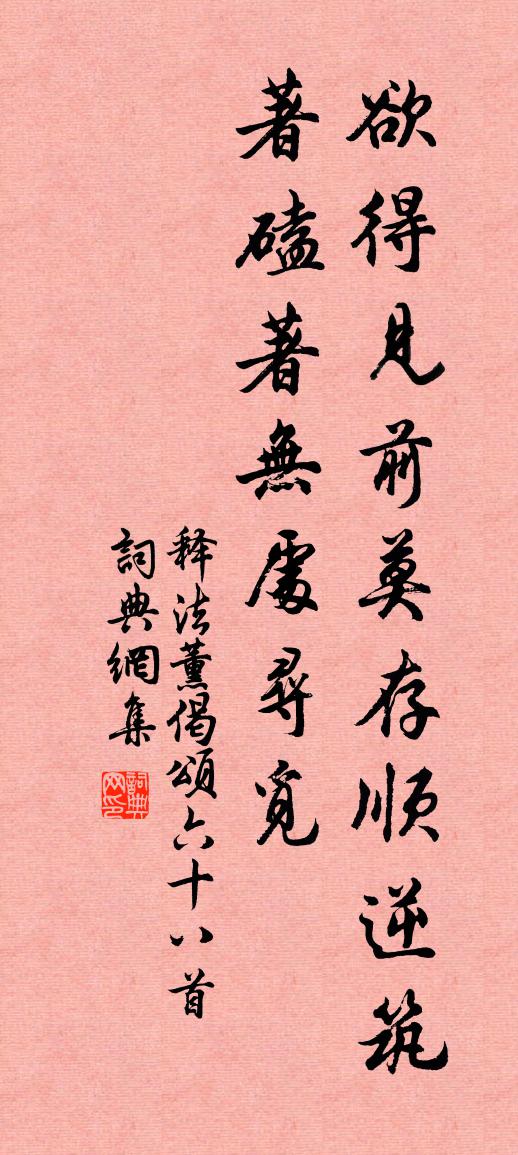 欲得見前莫存順逆筑
著磕著無處尋覓
释法薰偈頌六十八首
詞典網集
詞典网印